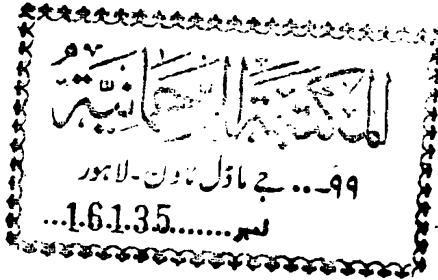 المكتبة الرحمانية
۹۹... جے ماڈل ٹاؤن - لاہور
نمبر.......16135...